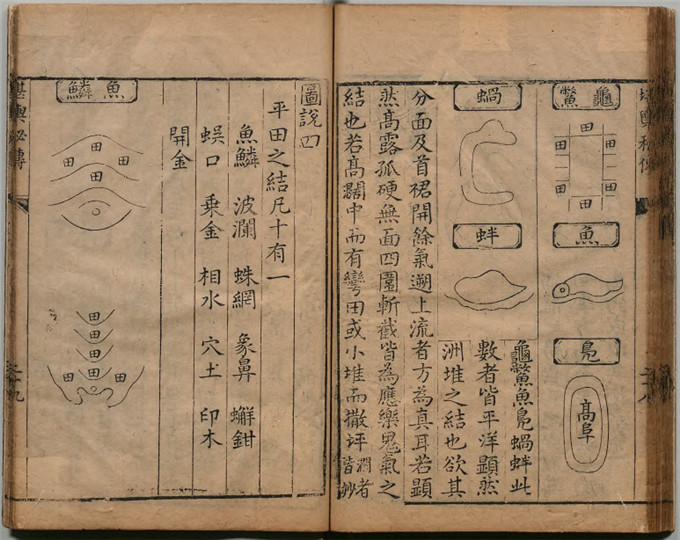 龜鱉
田
田
田
田
田
田
魚
鳧
高阜
蝸
蚌
龜鱉魚鳧蝸蚌此
數者皆平洋顯然
洲堆之結也欲其
分面及首裙開餘氣遡上流者方為真耳若顯
然高露孤硬無面四圍斬截皆為應樂鬼氣之
結也若高闊中而有彎田或小堆而撒坪
皆妙
圖說四
平田之結凡十有一
魚鱗 波瀾 蛛網 象鼻 蠏鉗
蜈口 乘金 相水 穴土 印木
開金
魚鱗
田
田
田
田
田
田
田
田
田
田
堪輿秘傳